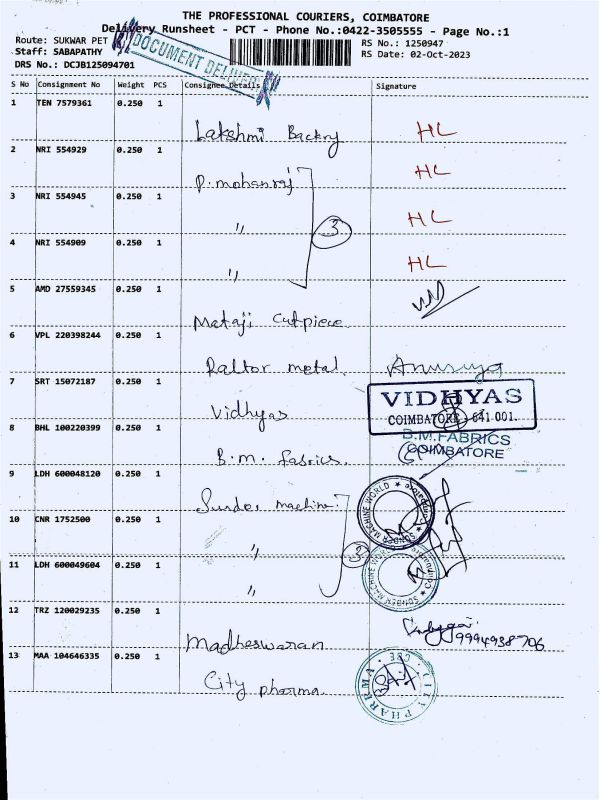 THE PROFESSIONAL COURIERS, COIMBATORE
Delivery Runsheet - PCT - Phone No.:0422-3505555 - Page No.:1
Route: SUKWAR PET
RS No.: 1250947
Staff: SABAPATHY
RS Date: 02-Oct-2023
DRS No.: DCJB125094701
DOCUMENT DELIVER
S No Consignment No Weight PCS Consignee Details Signature
1 TEN 7579361 0.250 1
Lakshmi Backry HL
2 NRI 554929 0.250 1
P. mohanraj HL
3 NRI 554945 0.250 1
" HL
3
4 NRI 554909 0.250 1
" HL
5 AMD 27559345 0.250 1
Mataji Cutpiece
6 VPL 220398244 0.250 1
Raltor metal Anusuya
7 SRT 15072187 0.250 1
Vidhyas
VIDHYAS
COIMBATORE - 641 001.
8 BHL 100220399 0.250 1
B.m. fabrics.
B.M.FABRICS
COIMBATORE
9 LDH 600048120 0.250 1
Sunder machine
SUNDER MACHINE WORLD
10 CNR 1752500 0.250 1
"
3
11 LDH 600049604 0.250 1
"
SUNDER MACHINE WORLD
12 TRZ 120029235 0.250 1
Madheswaran
9994938706
13 MAA 104646335 0.250 1
City pharma
CITY PHARRMA CBE